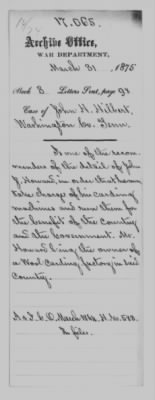 17.065.
Archive Office,
WAR DEPARTMENT,
March 31, 1875
Book 8 Letters Sent, page 98
Case of John H. Hilbert,
Washington Co. Tenn.
Is one of the recom-
menders of the detail of John
J. Howard, in order that he may
take charge of his carding
machines and run them for
the benefit of the County
and the Government. Mr.
Howard being the owner of
a Wool Carding factory in said
County.
A. & I. G. O. March 1864, H. No. 593.
In files.